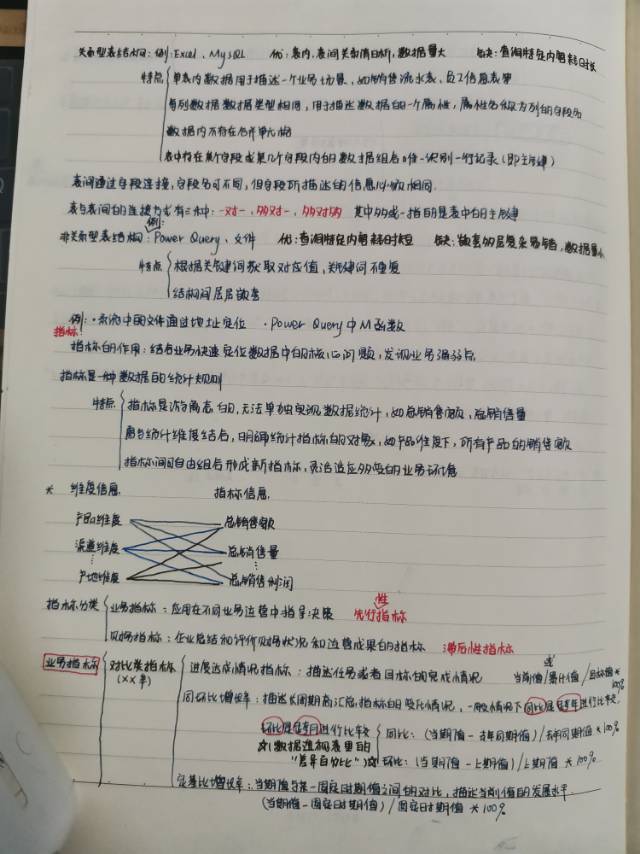 关系型表结构：例：Excel、MySQL 优：表内、表间关系清晰，数据量大 缺：查询特定内容耗时长
特点 单表内数据用于描述一个业务场景，如销售流水表、员工信息表等
每列数据数据类型相同，用于描述数据的一个属性，属性名称为列的字段名
数据内不存在合并单元格
表中存在某个字段或某几个字段内的数据组合唯一识别一行记录（即主键）
表间通过字段连接，字段名可不同，但字段所描述的信息必须相同.
表与表间的连接方式有三种：一对一，多对一，多对多 其中多或一指的是表中的主键
例：
非关系型表结构：Power Query、文件 优：查询特定内容耗时短 缺：嵌套多层复杂易错，数据量小
特点 根据关键词获取对应值，关键词不重复
结构间层层嵌套
例：·系统中的文件通过地址定位 ·Power Query中M函数
指标：
指标的作用：结合业务快速定位数据中的核心问题，发现业务强弱点
指标是一种数据的统计规则
特点 指标是游离态的，无法单独实现数据统计，如总销售额，总销售量
需与统计维度结合，明确统计指标的对象，如产品维度下，所有产品的销售额
指标间可自由组合形成新指标，灵活适应多变的业务环境
* 维度信息 指标信息
产品维度 总销售额
渠道维度 总销售量
产地维度 总销售利润
指标分类 业务指标：应用在不同业务运营中指导决策 先行性指标
财务指标：企业总结和评价财务状况和运营成果的指标 滞后性指标
业务指标 对比类指标 进度达成情况指标：描述任务或者目标的完成情况 当前值/累计值/目标值*100%
(××率) 同环比增长率：描述长周期高汇总指标的变化情况，一般情况下同比是每年进行比较
环比是每月进行比较 同比：(当期值－去年同期值)/去年同期值*100%
对数据透视表里的
"差异百分比" 环比：(当期值－上期值)/上期值*100%
定基比增长率：当期值与某一固定时期值之间的对比，描述当前值的发展水平
(当期值－固定时期值)/固定时期值*100%